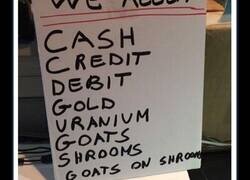 WE ACCEPT
CASH
CREDIT
DEBIT
GOLD
URANIUM
GOATS
SHROOMS
GOATS ON SHROOMS